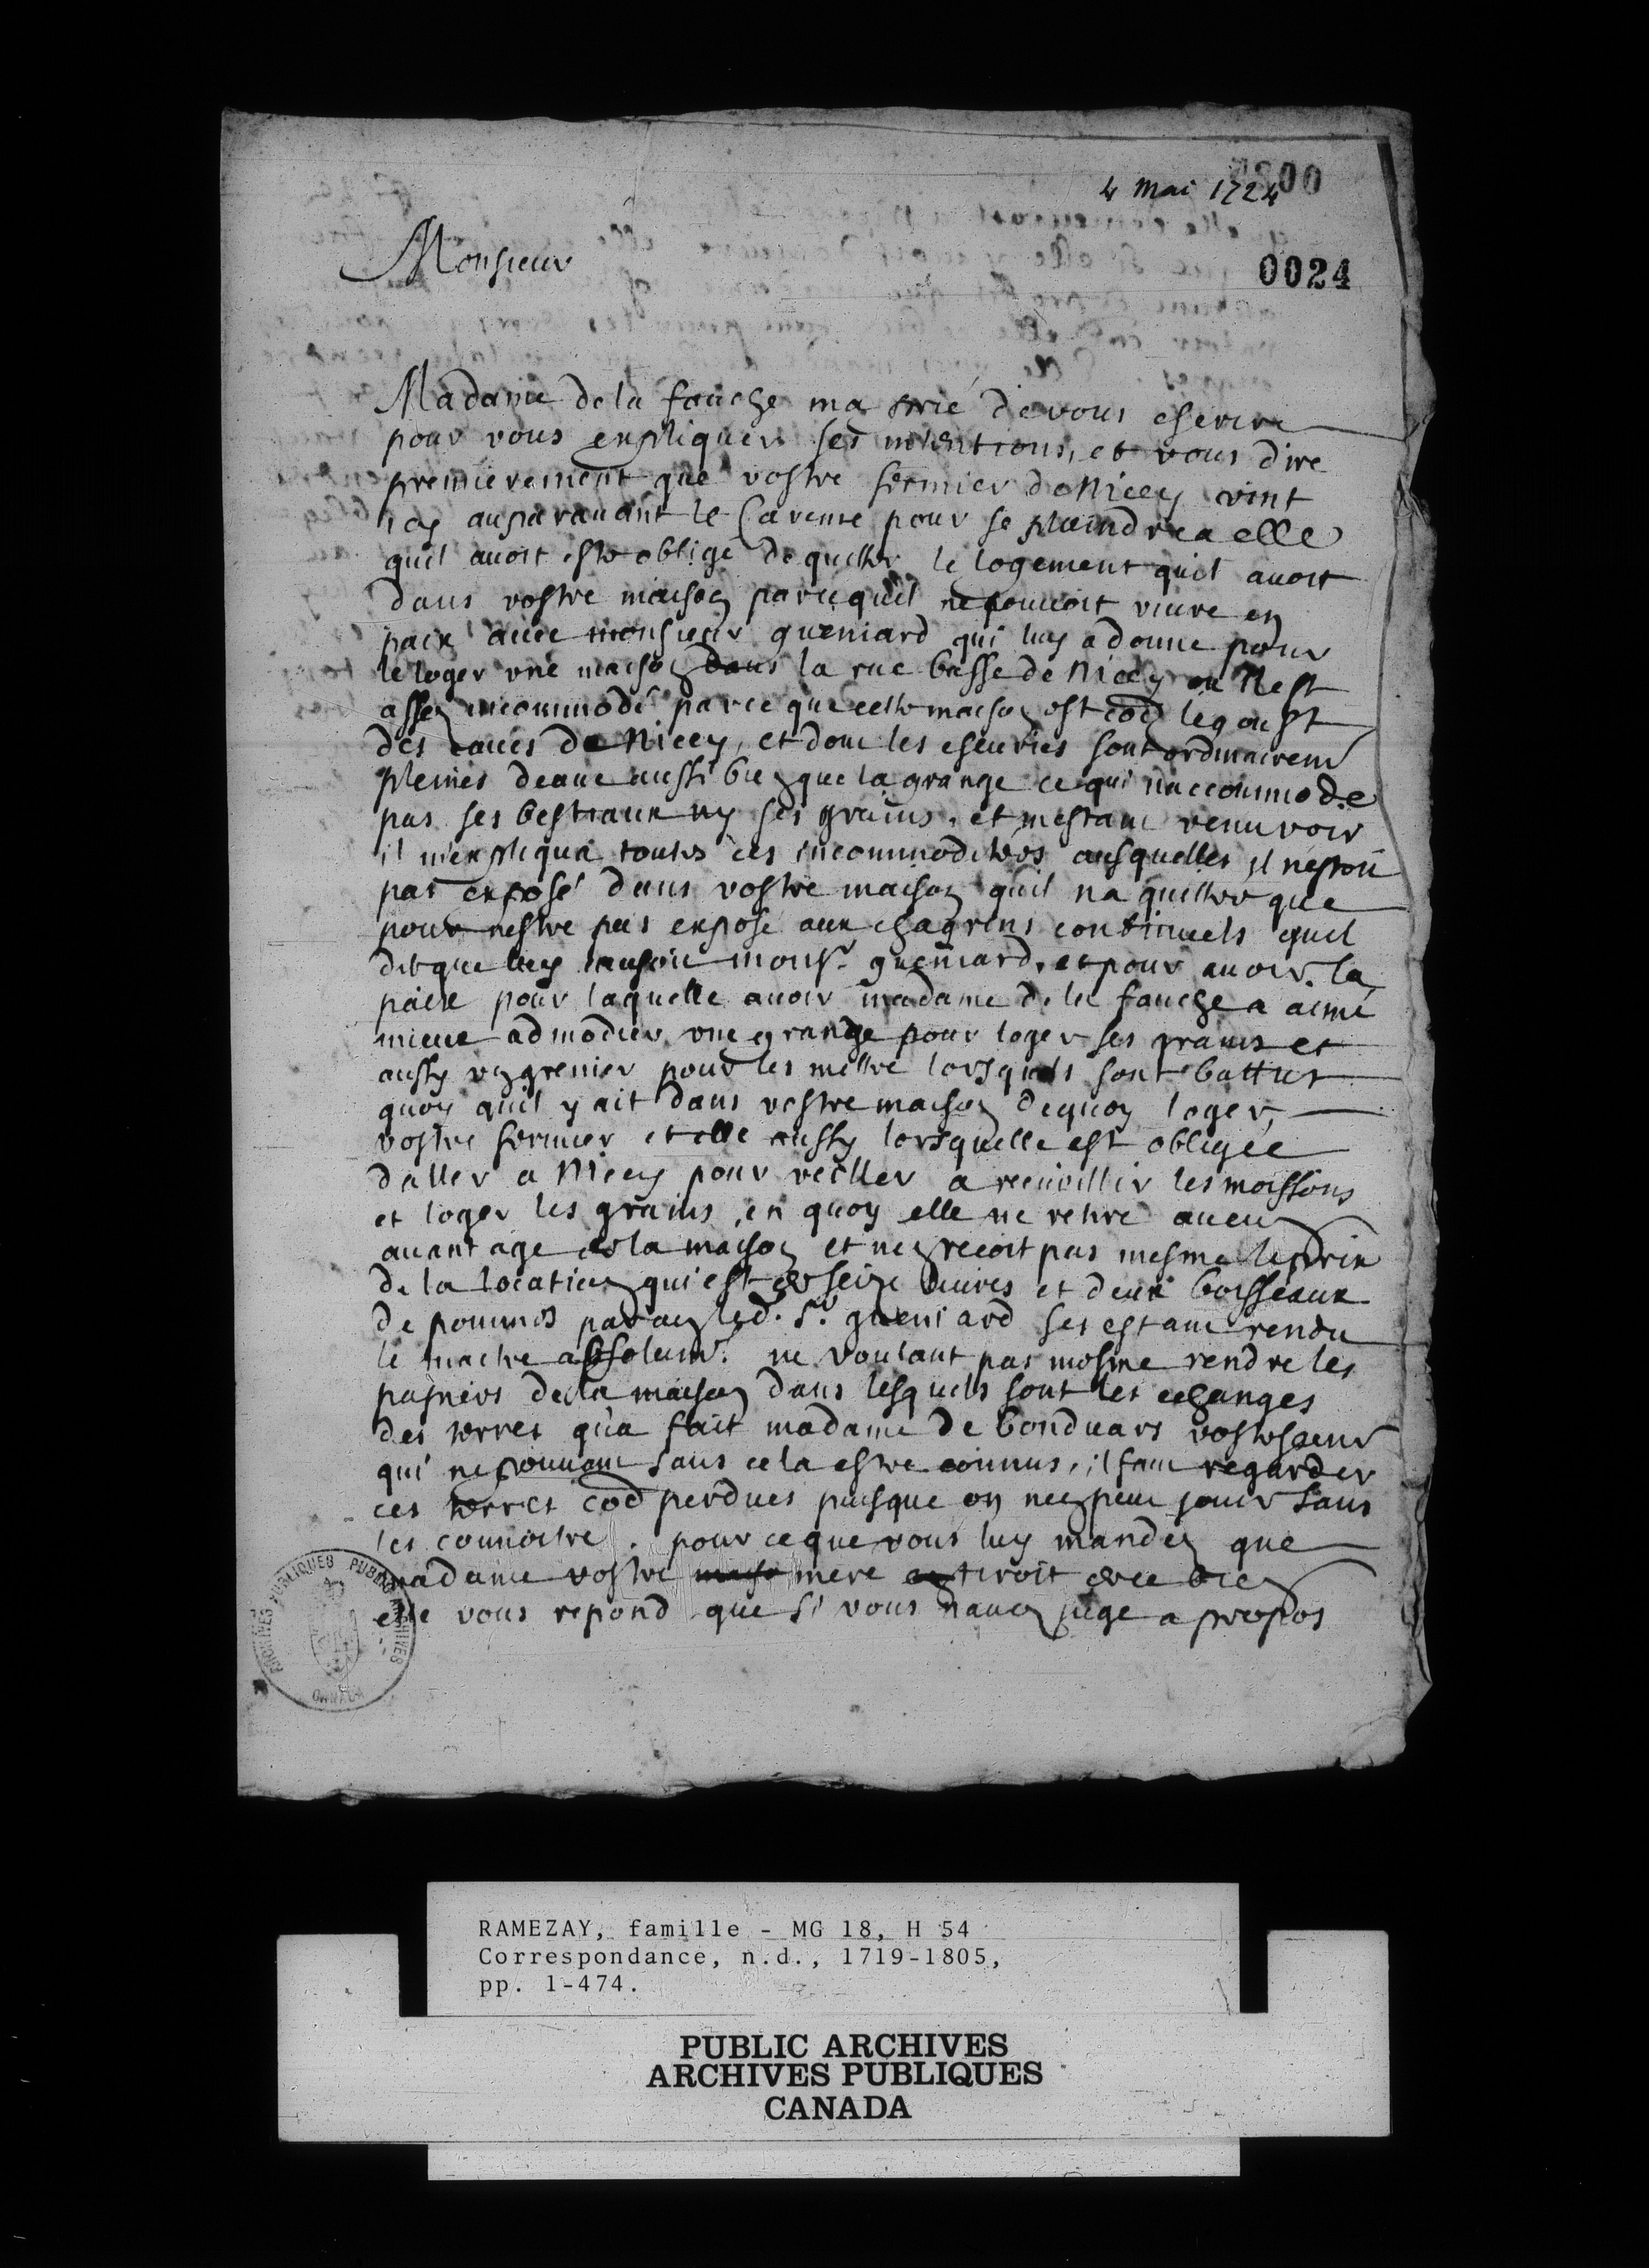 4 mai 1724
0024
Monsieur
Madame de la fauche ma prié de vous escrire
pour vous expliquer ses intentions, et vous dire
premierement que vostre fermier de Nicey vint
icy auparauant le Caresme pour se plaindre a elle
quil auoit este obligé de quitter le logement quil auoit
dans vostre maison parcequil ne pouuoit viure en
paix auec monsieur gueniard qui luy a donné pour
le loger une maison dans la rue basse de Nicey ou Il est
assez incommodé parce que cette maison est coe legoust
des eaues de Nicey, et dont les escuries sont ordinairemt
pleines deaue aussi bien que la grange ce qui naccommode
pas ses bestiaux ny ses grains. et mestant venu voir
il mexpliqua toutes ces incommoditées ausquelles il nestoit
pas exposé dans vostre maison quil na quittée que
pour nestre pas exposé aux chagrins continuels quil
dit que luy causoit monsr. gueniard, et pour auoir la
paix pour laquelle auoir madame de la fauche a aimé
mieux admodier une grange pour loger ses grains et
aussy un grenier pour les mettre lorsquils sont battus
quoy quil y ait dans vostre maison dequoy loger
vostre fermier et elle aussy lorsquelle est obligée
daller a Nicey pour veiller a recuillir les moissons
et loger les grains, en quoy elle ne retire aucun
auantage de la maison et nen recoit pas mesme le prix
de la location qui est de seize liures et deux boisseaux
de pommes par an led. Sr. gueniard ses estant rendu
le maitre absolumt. ne voulant pas mesme rendre les
papiers de la maison dans lesquels sont les echanges
des terres qua fait madame de bonduars vostre soeur
qui ne pouuant sans cela estre connus, il faut regarder
ces terres coe perdues puisque on nen peut jouir sans
les connoitre. pour ce que vous luy mandez que
madame vostre mere en tiroit de ce bien
elle vous repond que si vous nauez juge a propos
ARCHIVES PUBLIQUES PUBLIC ARCHIVES
CANADA
RAMEZAY, famille - MG 18, H 54
Correspondance, n.d., 1719-1805,
pp. 1-474.
PUBLIC ARCHIVES
ARCHIVES PUBLIQUES
CANADA